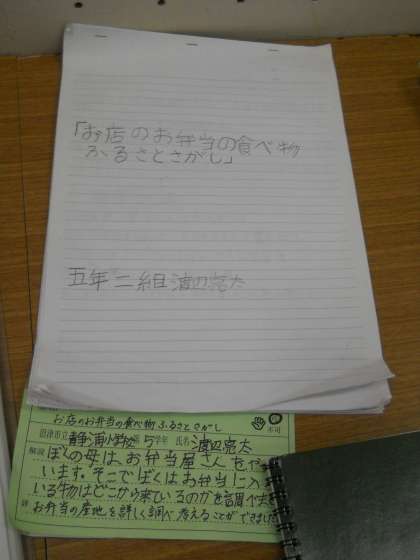 「お店のお弁当の食べ物
ふるさとさがし」
五年二組 渡辺亮太
お店のお弁当の食べ物ふるさとさがし
沼津市立 静浦小学校 第5学年 氏名 渡辺亮太
不可
解説 ぼくの母は、お弁当屋さんをや
います。そこでぼくはお弁当に入
いる物はどこから来ているのかを調べ
評 お弁当の産地を詳しく調べ考えることができました